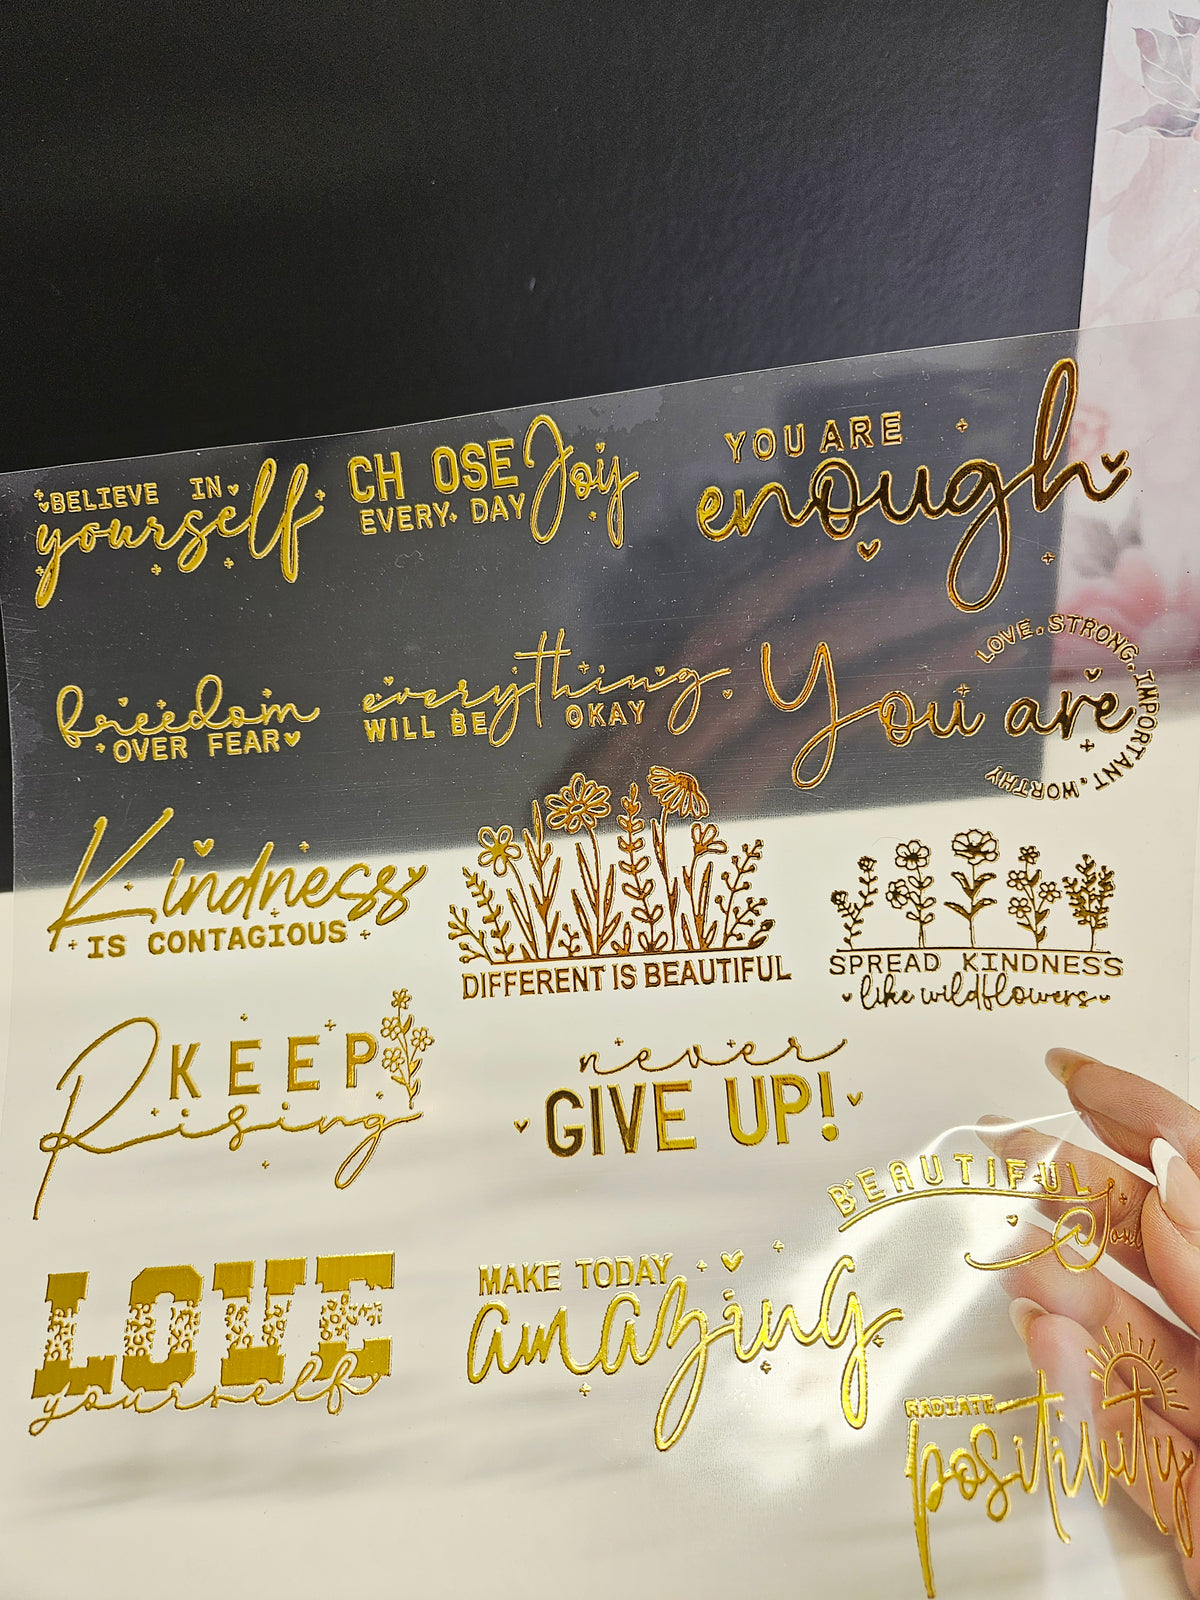 BELIEVE IN
yourself
CH OSE Joy
EVERY DAY
YOU ARE
enough
freedom
OVER FEAR
everything
WILL BE OKAY
You are
LOVE. STRONG. IMPORTANT. WORTHY
Kindness
IS CONTAGIOUS
DIFFERENT IS BEAUTIFUL
SPREAD KINDNESS
like wildflowers
KEEP
Rising
never
GIVE UP!
BEAUTIFUL
Soul
LOVE
yourself
MAKE TODAY
amazing
RADIATE
positivity